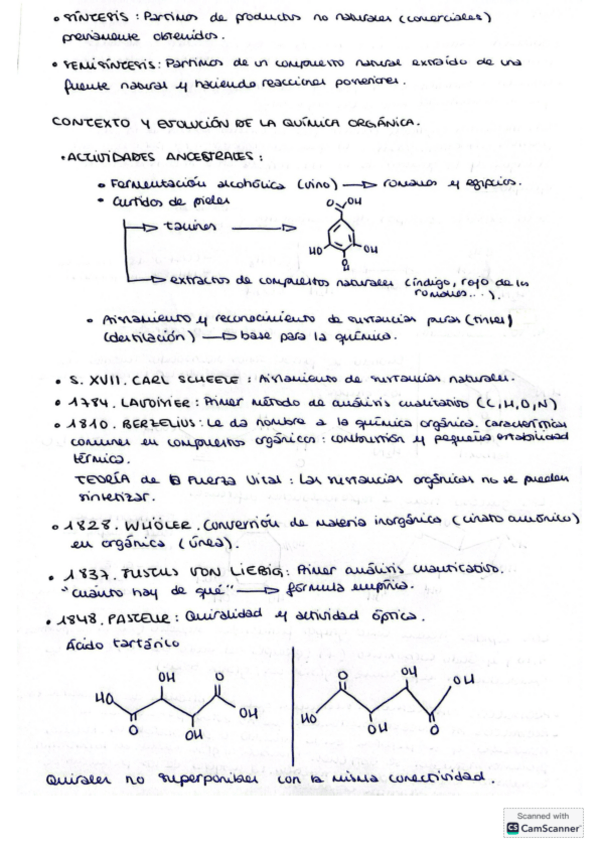 • SÍNTESIS: Partimos de productos no naturales (comerciales)
previamente obtenidos.
• SEMISÍNTESIS: Partimos de un compuesto natural extraído de una
fuente natural y haciendo reacciones posteriores.
CONTEXTO Y EVOLUCIÓN DE LA QUÍMICA ORGÁNICA.
• ACTIVIDADES ANCESTRALES:
• Fermentación alcohólica (vino) → romanos y egipcios.
• Curtidos de pieles
→ taninos →
O OH
HO OH
→ extractos de compuestos naturales (índigo, rojo de los
romanos...).
• Aislamiento y reconocimiento de sustancias puras (tintes)
(destilación) → base para la química.
• S. XVII. CARL SCHEELE: Aislamiento de sustancias naturales.
• 1784. LAVOIVIER: Primer método de análisis cualitativo (C, H, O, N)
• 1810. BERZELIUS: Le da nombre a la química orgánica. Características
comunes en compuestos orgánicos: combustión y pequeña estabilidad
térmica.
TEORÍA de la Fuerza Vital: Las sustancias orgánicas no se pueden
sintetizar.
• 1828. WHÖLER. Conversión de materia inorgánica (cianato amónico)
en orgánica (úrea).
• 1837. JUSTUS VON LIEBIG: Primer análisis cuantificativo.
"cuánto hay de qué" → fórmula empírica.
• 1848. PASTEUR: Quiralidad y actividad óptica.
Ácido tartárico
OH O OH
HO OH O OH
O OH HO OH O
Quirales no superponibles con la misma conectividad.
Scanned with
CS CamScanner